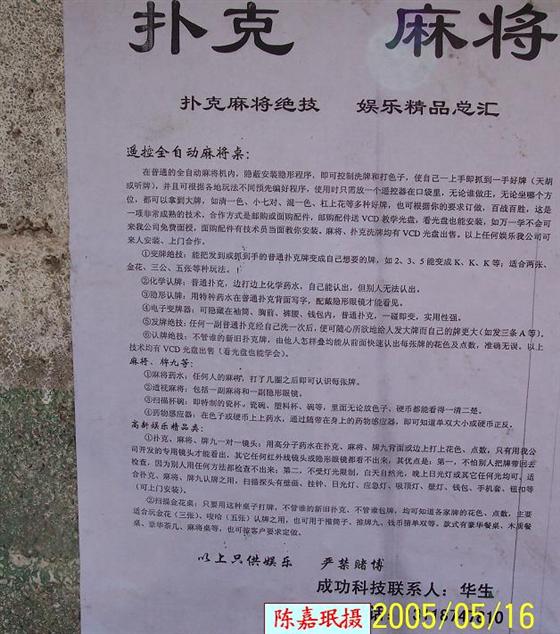 扑克 麻将
扑克麻将绝技 娱乐精品总汇
遥控全自动麻将桌：
在普通的全自动麻将机内，隐蔽安装隐形程序，即可控制洗牌和打色子，使自己一上手即抓到一手好牌（天胡
或听牌），并且可根据各地玩法不同预先编好程序，使用时只需放一个遥控器在口袋里，无论谁做庄，无论坐哪个方
位，都可以拿到大牌，如清一色、小七对、混一色、杠上花等多种好牌，也可根据你的要求订做，百战百胜，这是
一项非常成熟的技术，合作方式是邮购或面购配件，邮购配件送VCD教学光盘，看光盘也能安装，如万一学不会可
来我公司免费面授，面购配件有技术员当面教你安装。麻将、扑克洗牌均有VCD光盘出售。以上任何娱乐我公司可
来人安装、上门合作。
①变牌绝技：能把发到或抓到手的普通扑克牌变成自己想要的牌，如2、3、5能变成K、K、K等；适合两张、
金花、三公、五张等种玩法。
②化学认牌：普通扑克，边打边上化学药水，自己能认出，但别人无法认出。
③隐形认牌：用特种药水在普通扑克背面写字，配戴隐形眼镜才能看见。
④电子变牌器：可隐藏在袖筒、胸前、裤腰、钱包内，普通扑克，一碰即变，实用性强。
⑤发牌绝技：任何一副普通扑克经自己洗一次后，便可随心所欲地给人发大牌而自己的牌更大（如发三条A等）。
⑥认牌绝技：不管谁的新旧扑克牌，由他人怎样叠均能从前面快速认出每张牌的花色及点数，准确无误。以上
技术均有VCD光盘出售（看光盘也能学会）。
麻将、牌九等：
①麻将药水：任何人的麻将，打了几圈之后即可认识每张牌。
②透视麻将：包括一副麻将和一副隐形眼镜。
③扫描杯碗：即特制的瓷杯，瓷碗、塑料杯、碗等，里面无论放色子、硬币都能看得一清二楚。
④药物感应器：在色子或硬币上上药水，通过随带在身上的药物感应器，即可知道单双大小或硬币正反。
高新娱乐精品类：
①扑克、麻将、牌九一对一镜头：用高分子药水在扑克、麻将、牌九背面或边上打上花色、点数，只有用我公
司开发的专用镜头才能看出，其它任何红外线镜头或隐形眼镜都看不出来，其优点是：第一，不怕别人把牌带回去
检查，因为别人用任何方法都检查不出来；第二，不受灯光限制，白天自然光，晚上日光灯或其它任何光均可，适
合扑克、麻将、牌九认牌之用，扫描探头有壁画、挂钟、日光灯、应急灯、吸顶灯、壁灯、钱包、手机套、钮扣等
（可上门安装）。
②扫描金花桌：只要用这种桌子打牌，不管谁的新旧扑克、不管谁包牌，均可知道各家牌的花色、点数，主要
适合玩金花（三张）、唆哈（五张）认牌之用，也可用于推筒子、推牌九、钱币猜单双等，款式有豪华餐桌、木质餐
桌、豪华茶几、麻将桌等，也可按客户要求定做。
以上只供娱乐 严禁赌博
成功科技联系人：华生
陈嘉珉摄 2005/05/16